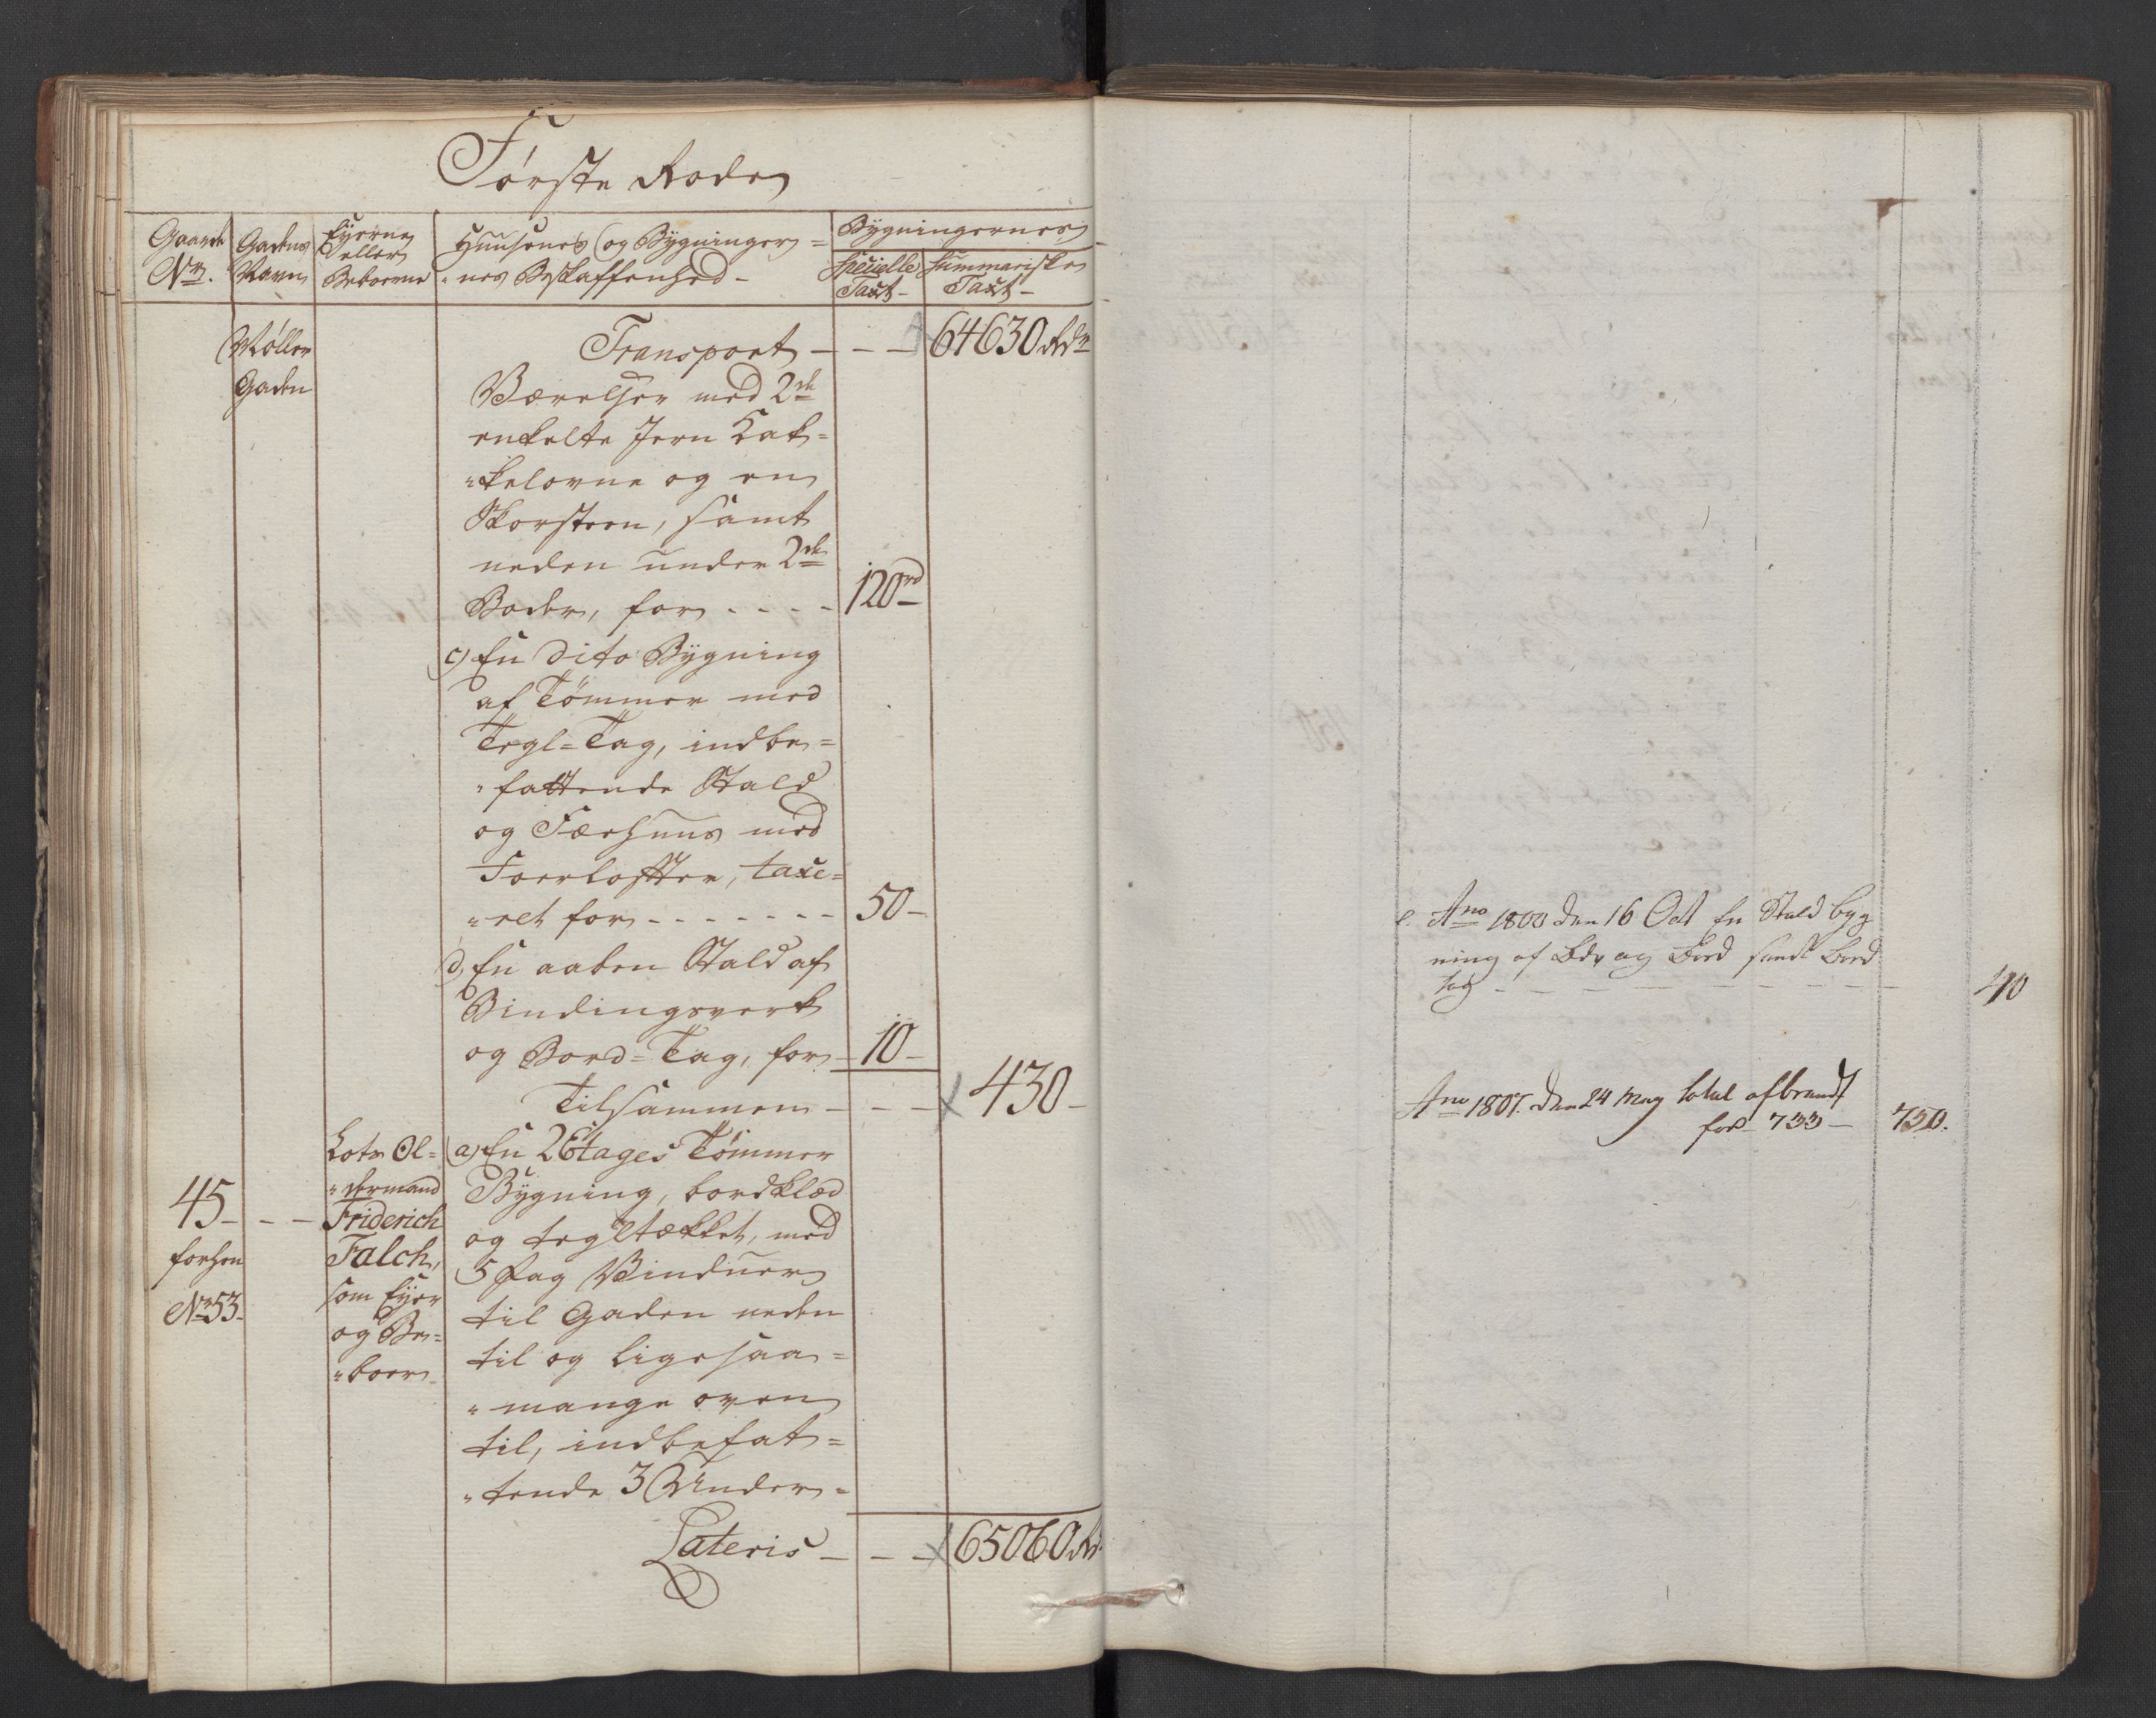 Første Rode
Gaards
No.
Gadens
Navn
Eyerne
eller
Beboerne
Huusenes og Bygninger=
"nes Beskaffenhed-
Bygningernes
Specielle
Taxt-
Summariske
Taxt-
Møller
Gaden
Transport - - - 64630 Rdr
Værelser med 2de
enkelte Jern Kak=
"kelovne og en
Skorsteen, samt
neden under 2de
Boder, for - - - - 120rd
c) En dito Bygning
af Tömmer med
Tegl=Tag, indbe=
"fattende Stald
og Færhuus med
Foerlofter, taxe=
"ret for - - - - - - - 50-
d, En aaben Stald af
Bindingsverk
og Bord=Tag, for - 10-
Tilsammen - - - 430-
45- - -
forhen
No 53-
Lots Ol=
"dermand
Friderich
Falch,
som Eyer
og Be=
"boer-
a) En 2 Etages Tömmer
Bygning, bordklæd
og tegltækket, med
5 Fag Vinduer
til Gaden neden
til og ligesaa=
"mange oven
til, indbefat=
"tende 3 Under=
Lateris - - - 65060 Rd.
e. Ano 1800 den 16 Oct En Stald byg
ning af og Bord samt Bord
tag - - - - - - - - 40
Ano 1801. den 24 May total afbrandt
for 733 - 750.